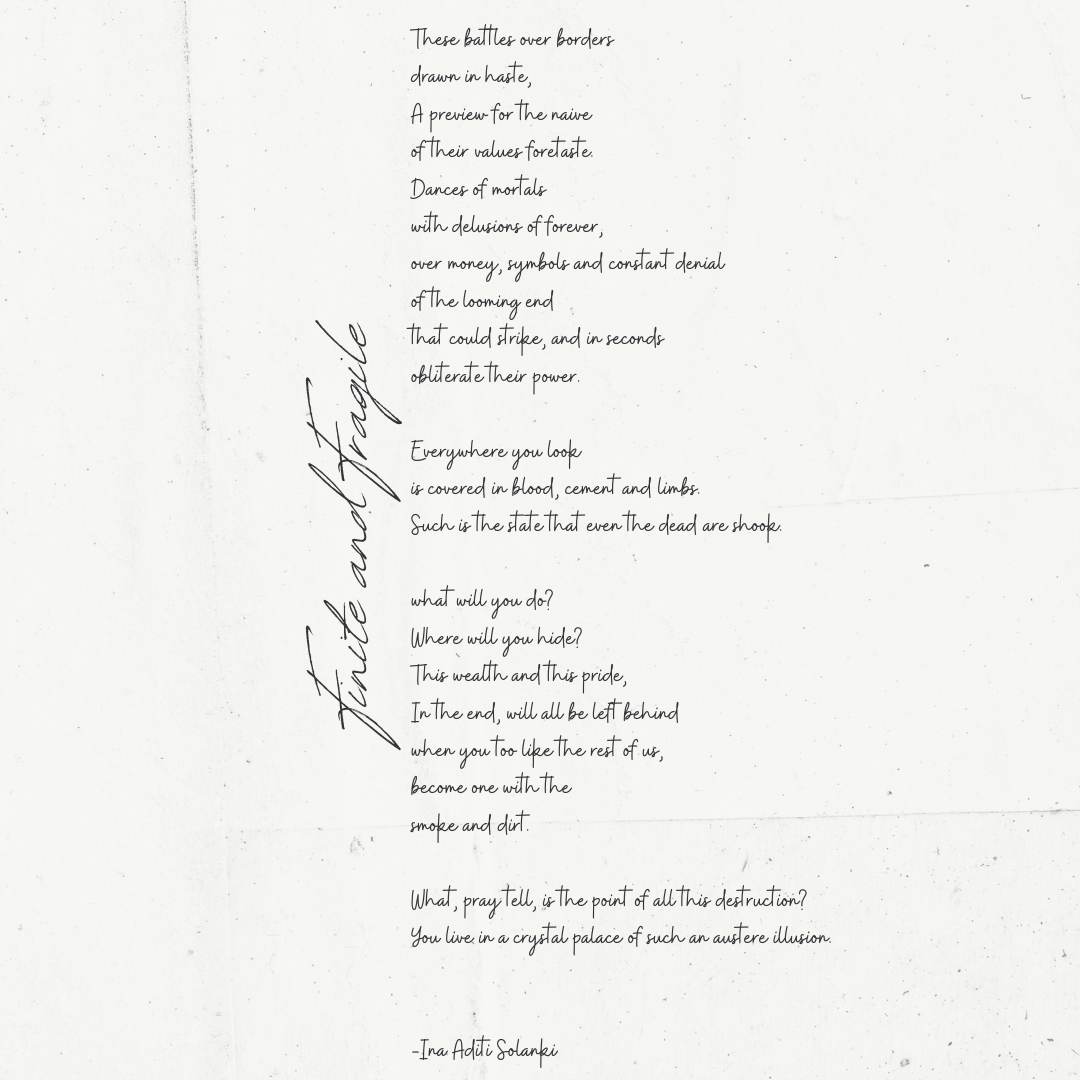 Finite and Fragile
These battles over borders
drawn in haste,
A preview for the naive
of their values foretaste.
Dances of mortals
with delusions of forever,
over money, symbols and constant denial
of the looming end
that could strike, and in seconds
obliterate their power.
Everywhere you look
is covered in blood, cement and limbs.
Such is the state that even the dead are shook.
what will you do?
Where will you hide?
This wealth and this pride,
In the end, will all be left behind
when you too like the rest of us,
become one with the
smoke and dirt.
What, pray tell, is the point of all this destruction?
You live in a crystal palace of such an austere illusion.
-Ina Aditi Solanki